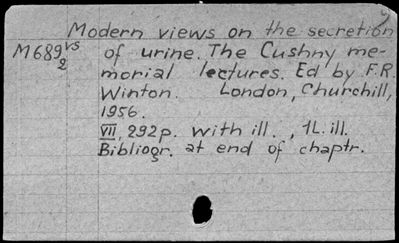 Modern views on the secretion
M689vs2 of urine. The Cushny me-
morial lectures. Ed by F.R.
Winton. London, Churchill,
1956.
VII, 292p. with ill., 1L. ill.
Bibliogr. at end of chaptr.